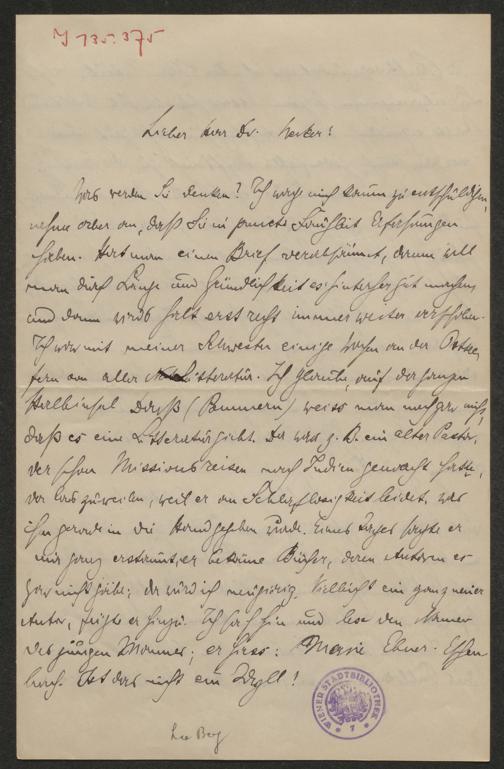 J 135.375
Lieber Herr Dr. Necker!
Was werden Sie denken? Ich wage mich kaum zu entschuldigen,
nehme aber an, daß Sie in puncto Faulheit Erfahrungen
haben. Hat man einen Brief versäumt, dann will
man durch Länge und Gründlichkeit es hinterher gut machen,
und dann wird's halt erst recht immer weiter verschoben.
Ich war mit meiner Schwester einige Wochen an der Ostsee,
fern von aller Litteratur. Ich glaube auf der ganzen
Halbinsel Darß (Pommern) weiss man noch gar nicht,
daß es eine Litteratur giebt. Da war z. B. ein alter Pastor,
der schon Missionsreisen nach Indien gemacht hatte,
der las zuweilen, weil er an Schlaflosigkeit leidet, was
ihm gerade in die Hand gegeben wurde. Eines Tages sagte er
mir ganz erstaunt, er bekäme Bücher, deren Autoren es
gar nicht gäbe; da wurd ich neugierig. Vielleicht ein ganz neuer
Autor, fügte er hinzu. Ich sah hin und lese den Namen
des jungen Mannes; er hiess: Marie Ebner-Eschen
bach. Ist das nicht ein Idyll!
WIENER STADTBIBLIOTHEK
Leo Berg